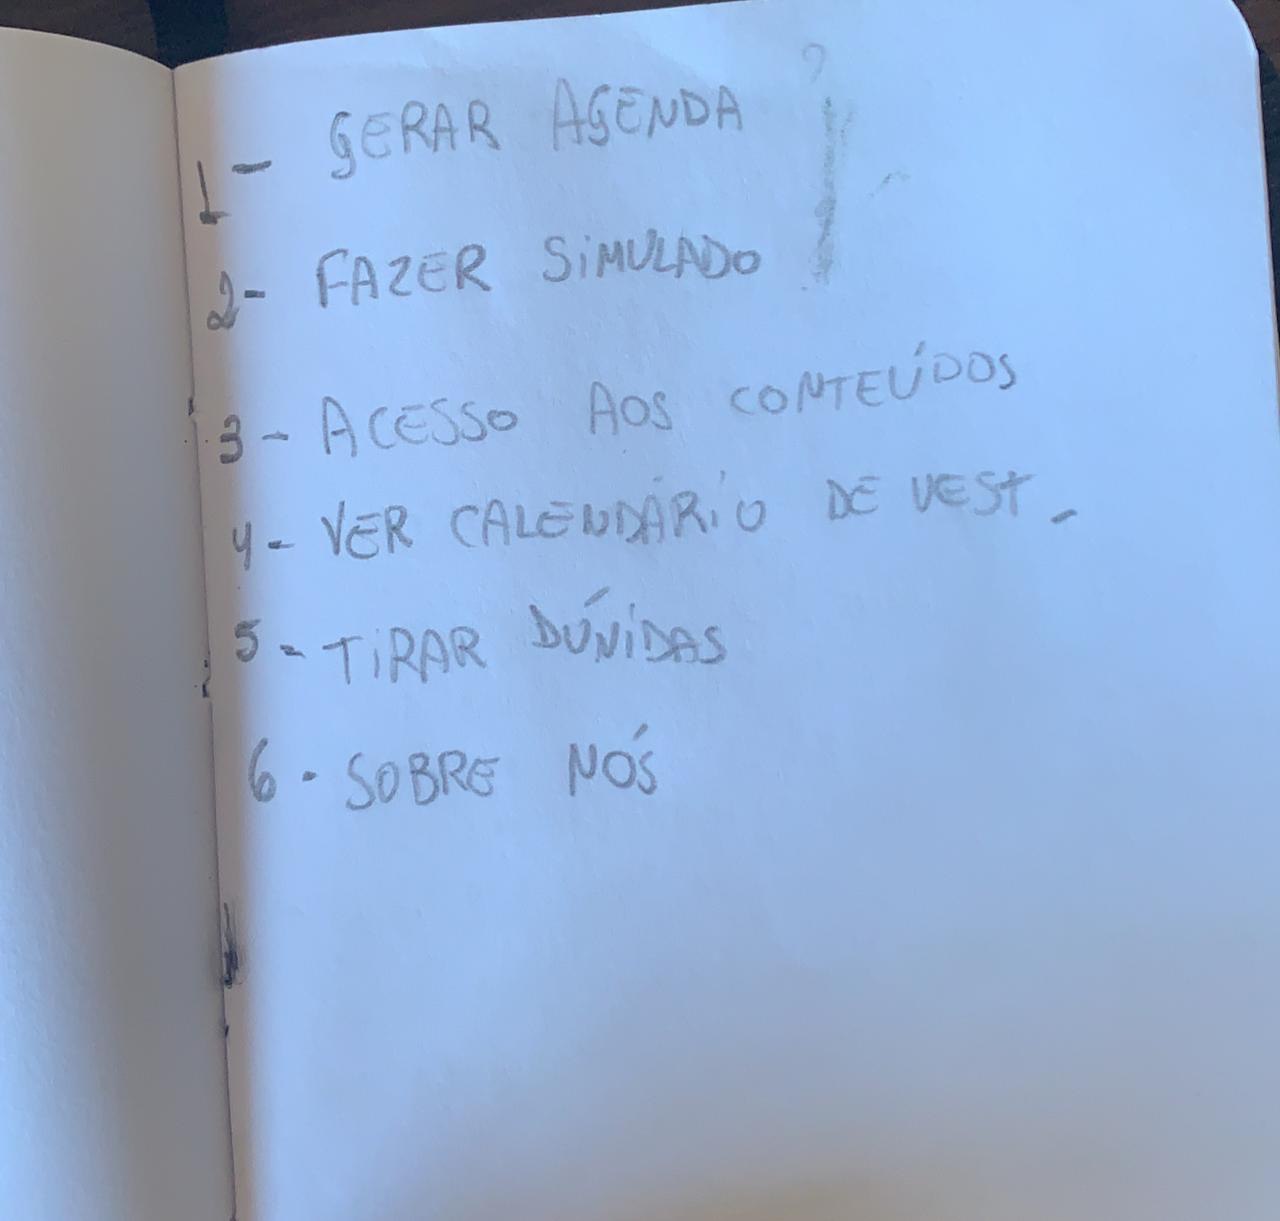 1- GERAR AGENDA
2- FAZER SIMULADO
3- ACESSO AOS CONTEÚDOS
4- VER CALENDÁRIO DE VEST.
5- TIRAR DÚVIDAS
6- SOBRE NÓS